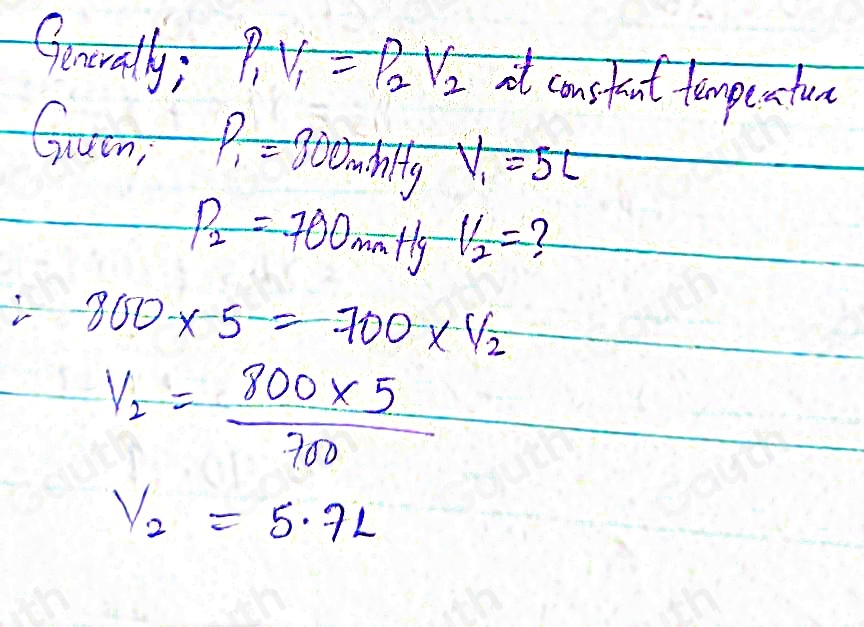 Generally; P₁V₁ = P₂V₂ at constant temperature
Given; P₁ = 800mmHg V₁ = 5L
P₂ = 700mmHg V₂ = ?
∴ 800 × 5 = 700 × V₂
V₂ = 800 × 5 / 700
V₂ = 5.7L